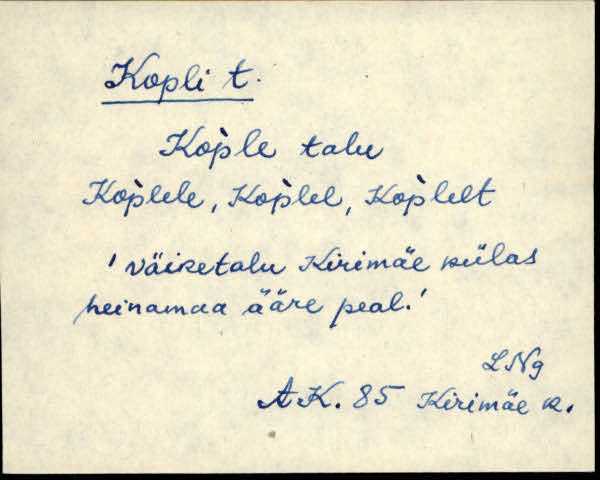 Kopli t.
Kop̀le talu
Kop̀lele, Kop̀lel, Kop̀lelt
'väiketalu Kirimäe külas
heinamaa ääre peal.'
LNg
A.K. 85 Kirimäe k.